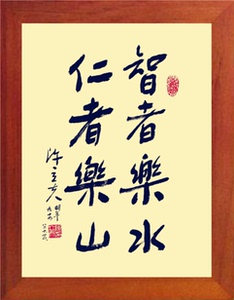 智者樂水
仁者樂山